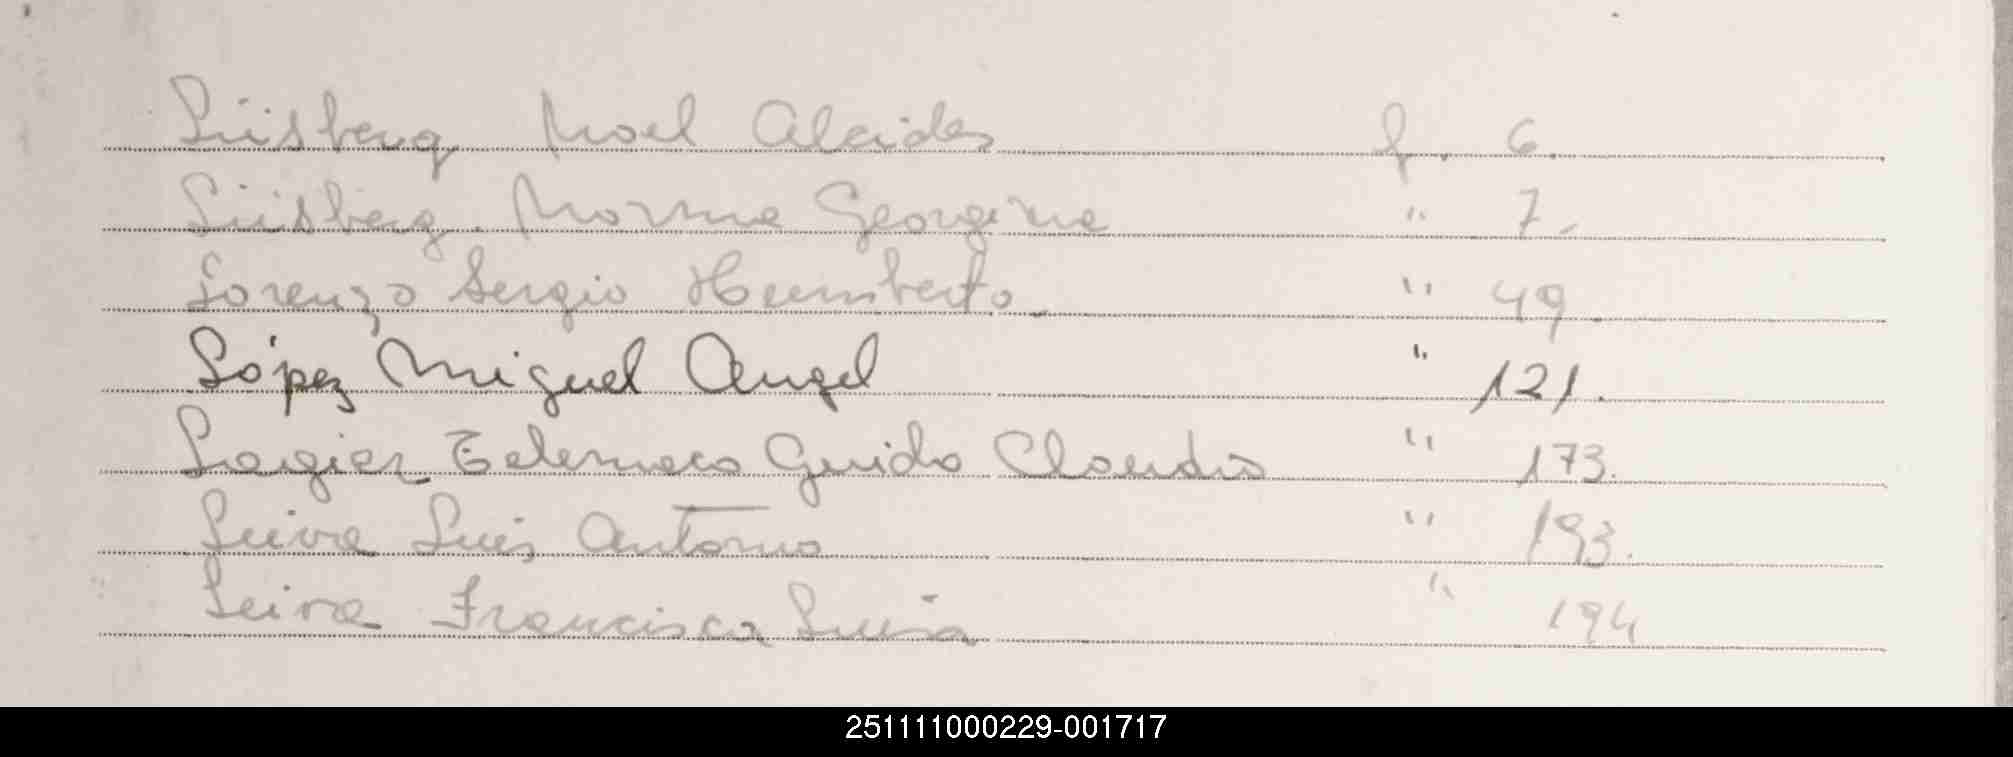 Lüisberg Noel Alcides f. 6.
Lüisberg. Norma Georgina " 7.-
Lorenzo Sergio Humberto. " 49.
López Miguel Angel " 121.
Laugier Telemaco Guido Claudio " 173.
Leiva Luis Antonio " 193.
Leiva Francisca Luisa " 194
251111000229-001717